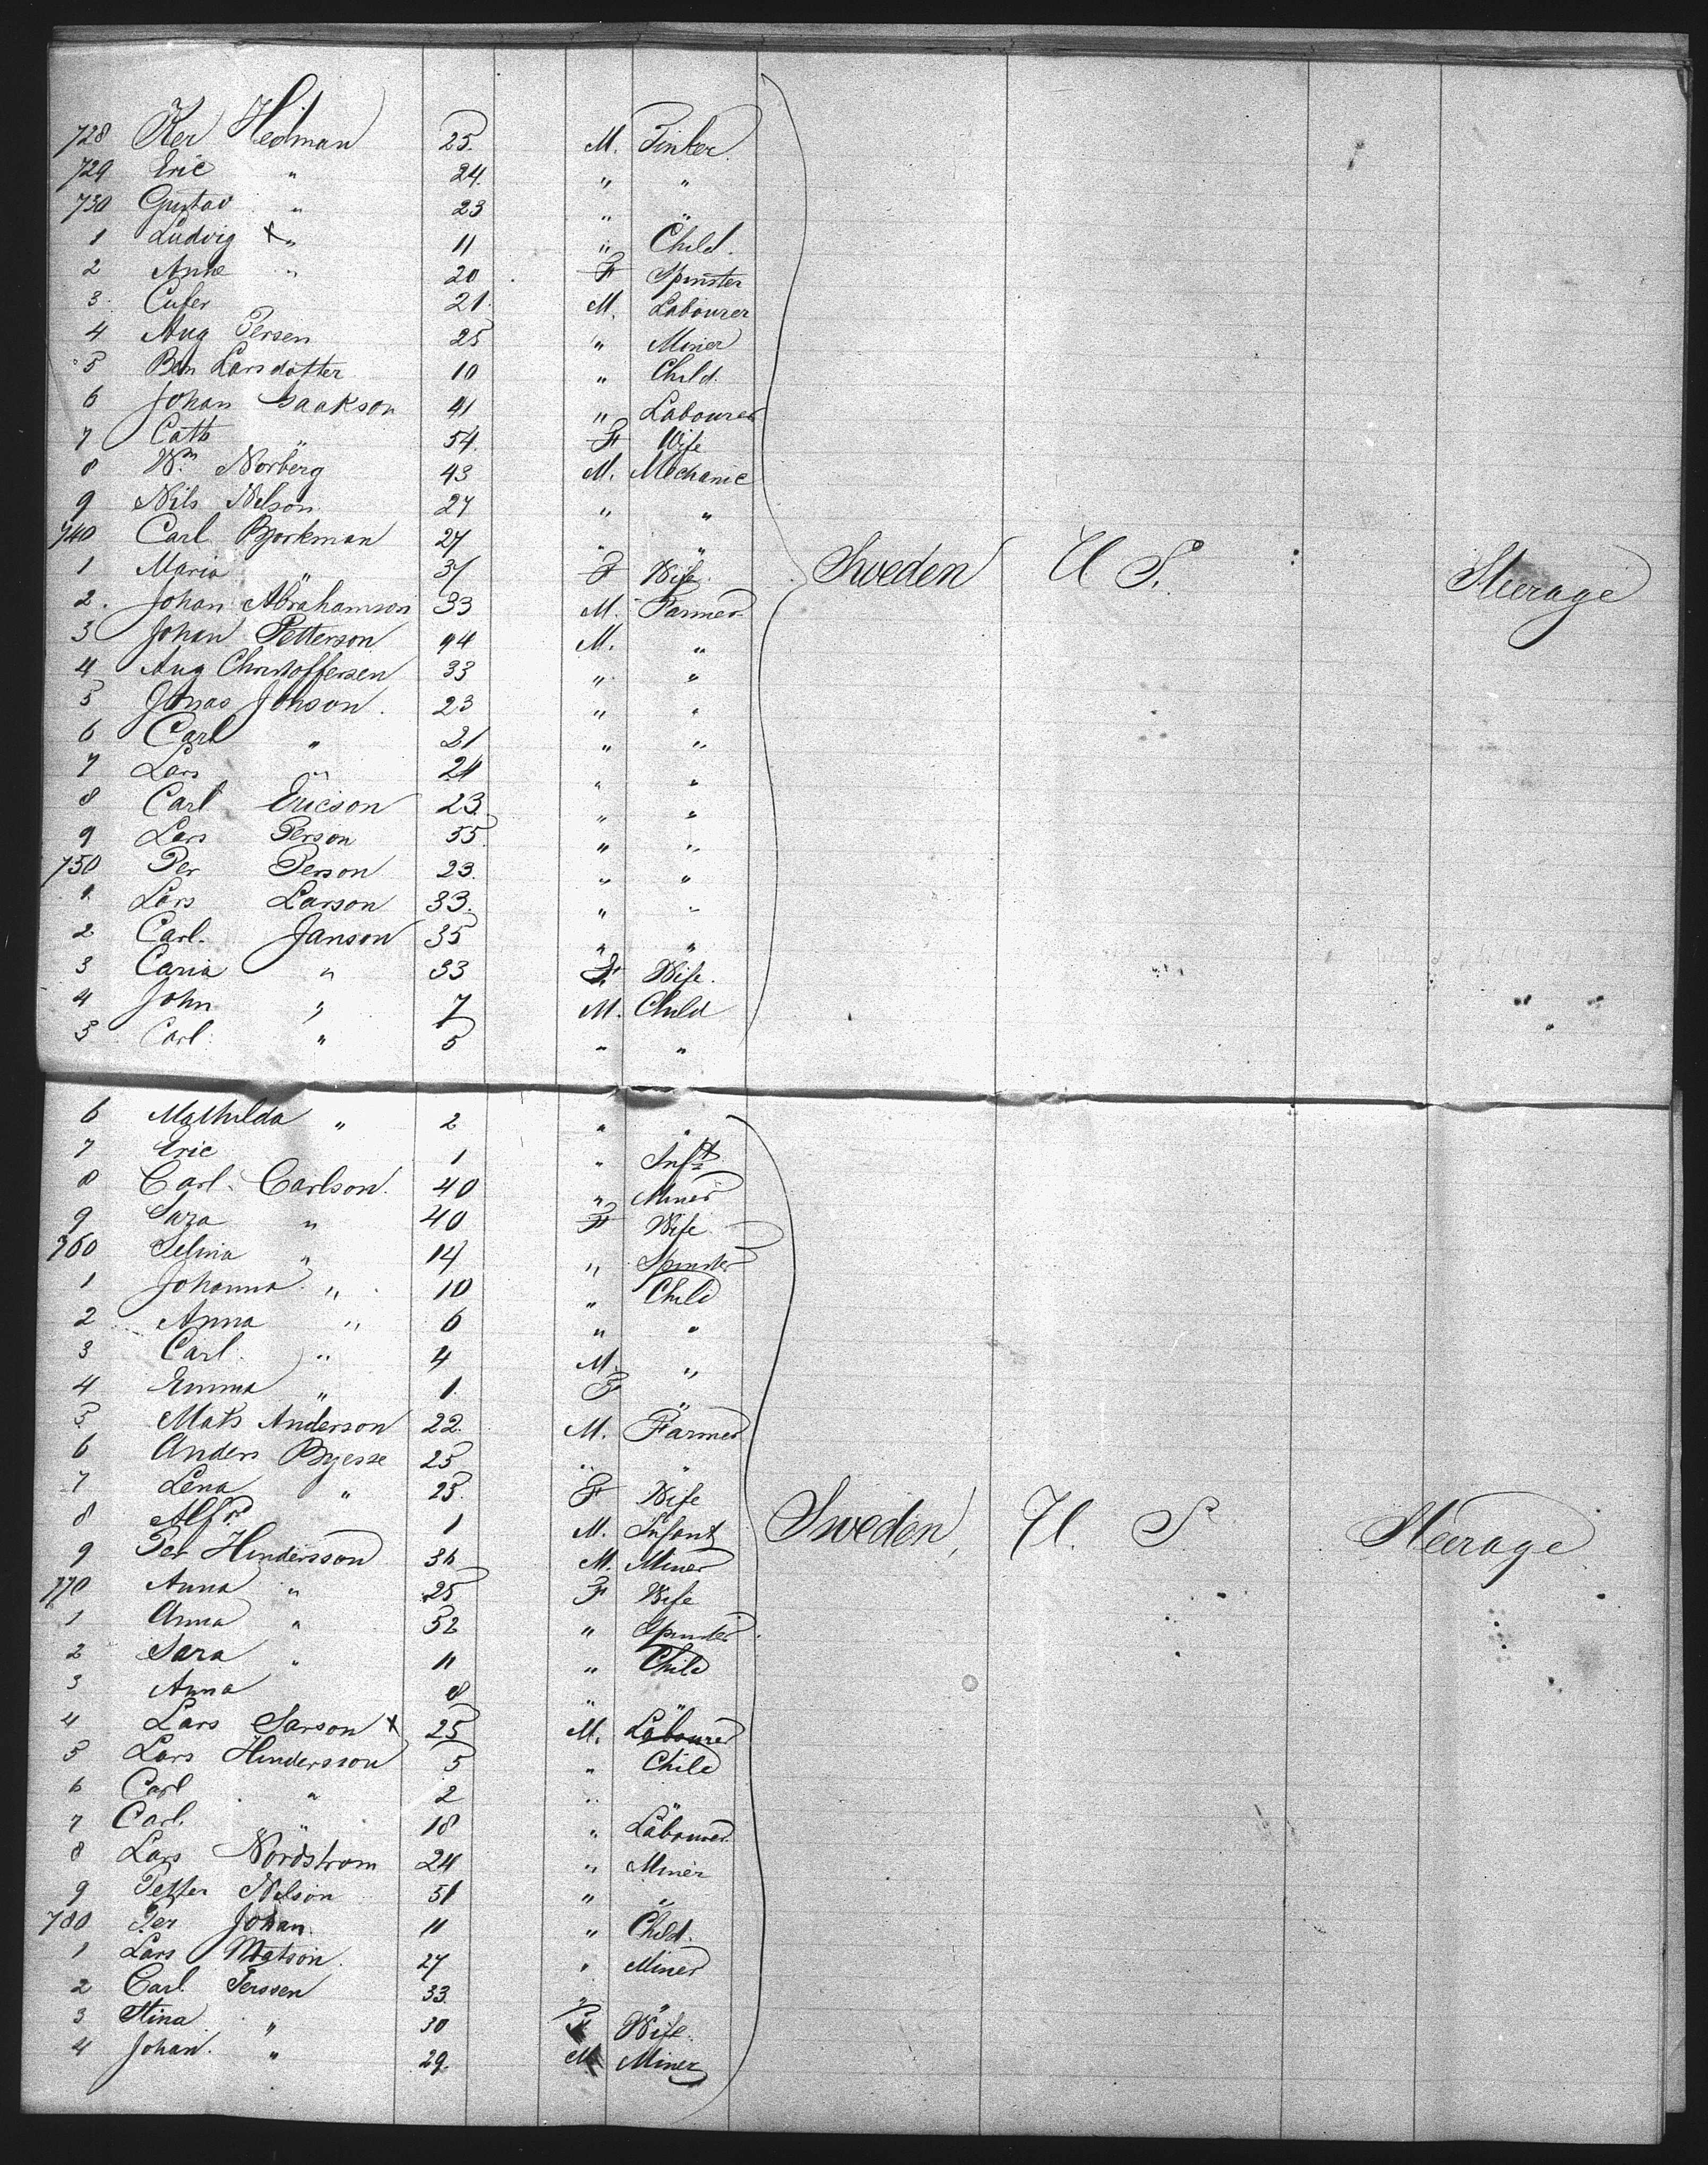 728 Per Hedman 25. M. Tinker.
729 Eric " 24. " "
730 Gustav " 23 " "
1 Ludvig x " 11 " Child.
2 Anne " 20 F Spinster
3. 21. M. Labourer
4 Aug Persen 25 " Miner
5 Larsdotter 10 " Child.
6 Johan Isaakson 41 " Labourer
7 Cath " 54. F Wife
8 Wm Norberg 43 M. Mechanic
9 Nils Nelson. 27 " "
740 Carl Bjorkman 27 " "
1 Maria " 31 F Wife.
2. Johan Abrahamson 33 M. Farmer
3 Johan Petterson 44 M. "
4 Aug Christoffersen 33 " "
5 Jonas Jonson. 23 " "
6 Carl " 21 " "
7 Lars " 24 " "
8 Carl Ericson 23. " "
9 Lars Person 55 " "
750 Per Person 23. " "
1 Lars Larson 33. " "
2 Carl. Janson 35 " "
3 Caria " 33 F Wife.
4 John " 7 M. Child
5 Carl " 5 " "
Sweden U S. Steerage
6 Mathilda " 2 " "
7 Eric 1 " Inft
8 Carl. Carlson. 40 " Miner
9 Sara " 40 F Wife
760 Selina " 14 " Spinster
1 Johanna " 10 " Child
2 Anna " 6 " "
3 Carl. " 4 M. "
4 Emma " 1. F "
5. Mats Anderson 22. M. Farmer
6 Anders 25 " "
7 Lena " 25. F Wife
8 Alfr 1 M. Infant
9 Per Hindersson 36 M. Miner
770 Anna " 25 F Wife
1 Anna " 52 " Spinster
2 Sara " 11 " Child
3 Anna 8 " "
4 Lars Sarson x 25 M. Labourer
5 Lars Hindersson 5 " Child
6 Carl " 2 " "
7 Carl. " 18 " Labourer
8 Lars Nordstrom 24 " Miner
9 Petter Nelson 51 " "
780 Per Johan. 11 " Child.
1 Lars Matson. 27 " Miner
2 Carl Perssen 33. " "
3 Stina " 30 F Wife.
4 Johan. " 29. M Miner
Sweden, U. S. Steerage